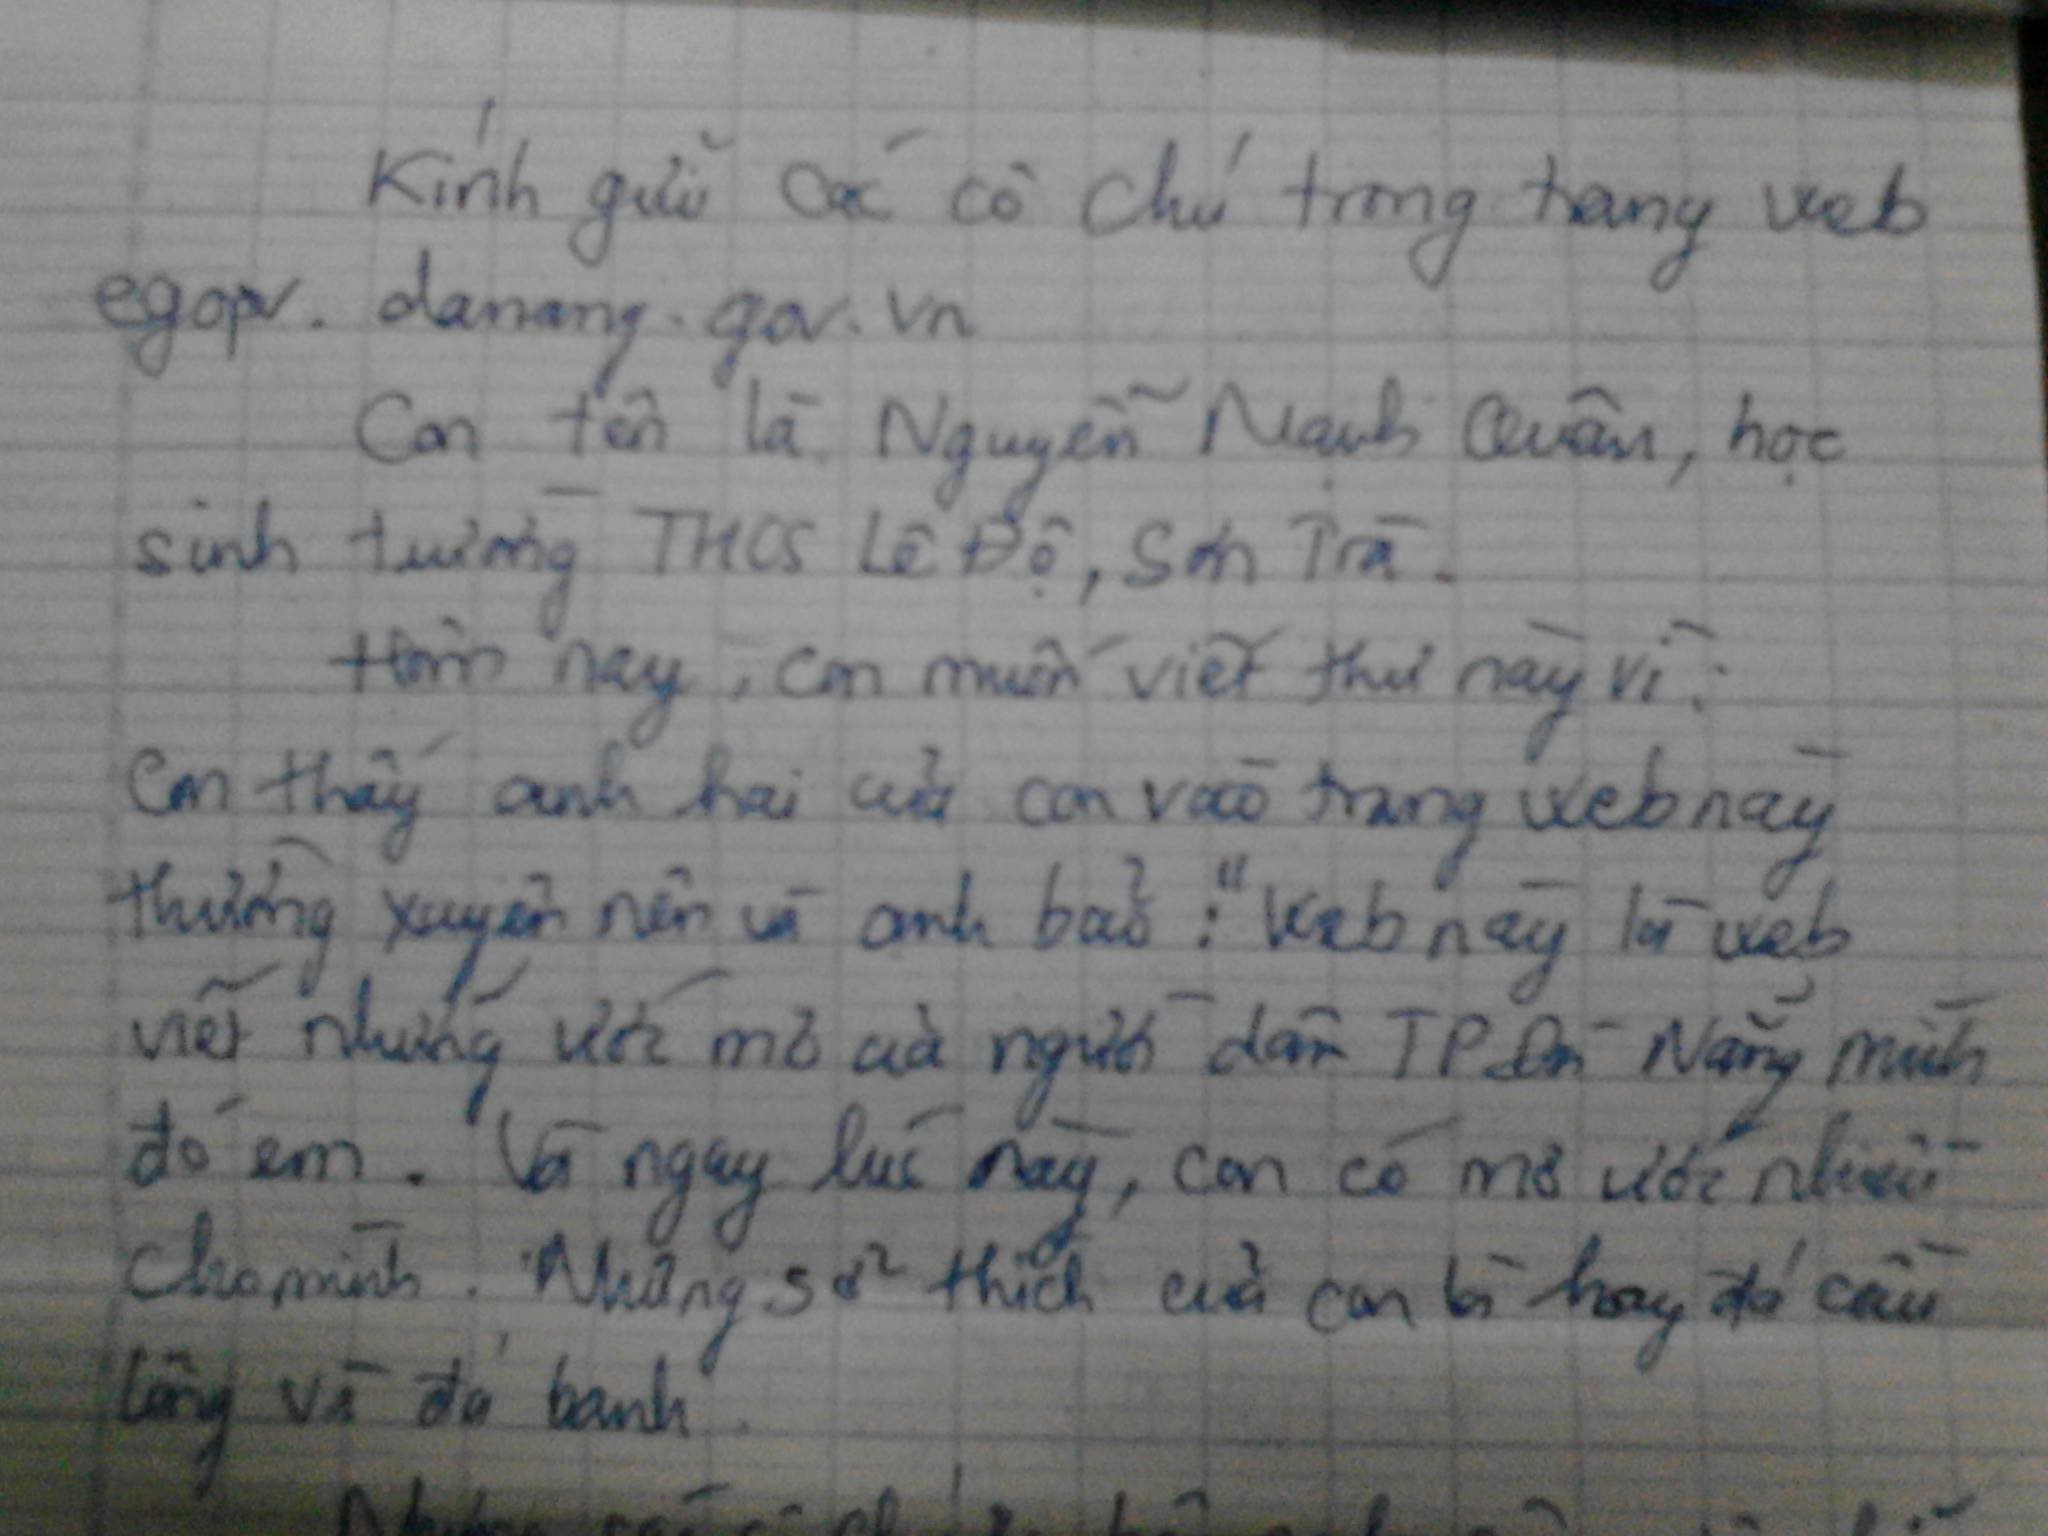 Kính gửi các cô chú trong trang web
egopv.danang.gov.vn
Con tên là Nguyễn Mạnh Quân, học
sinh tường THCS Lê Độ, Sơn Trà.
Hôm nay, con muốn viết thư này vì:
Con thấy anh hai của con vào trang web này
thường xuyên nên và anh bảo: "Web này là web
viết những ước mơ của người dân TP Đà Nẵng mình
đó em. Và ngay lúc này, con có mơ ước nhiều
cho mình. Những sở thích của con là hay đá cầu
lông và đá banh.